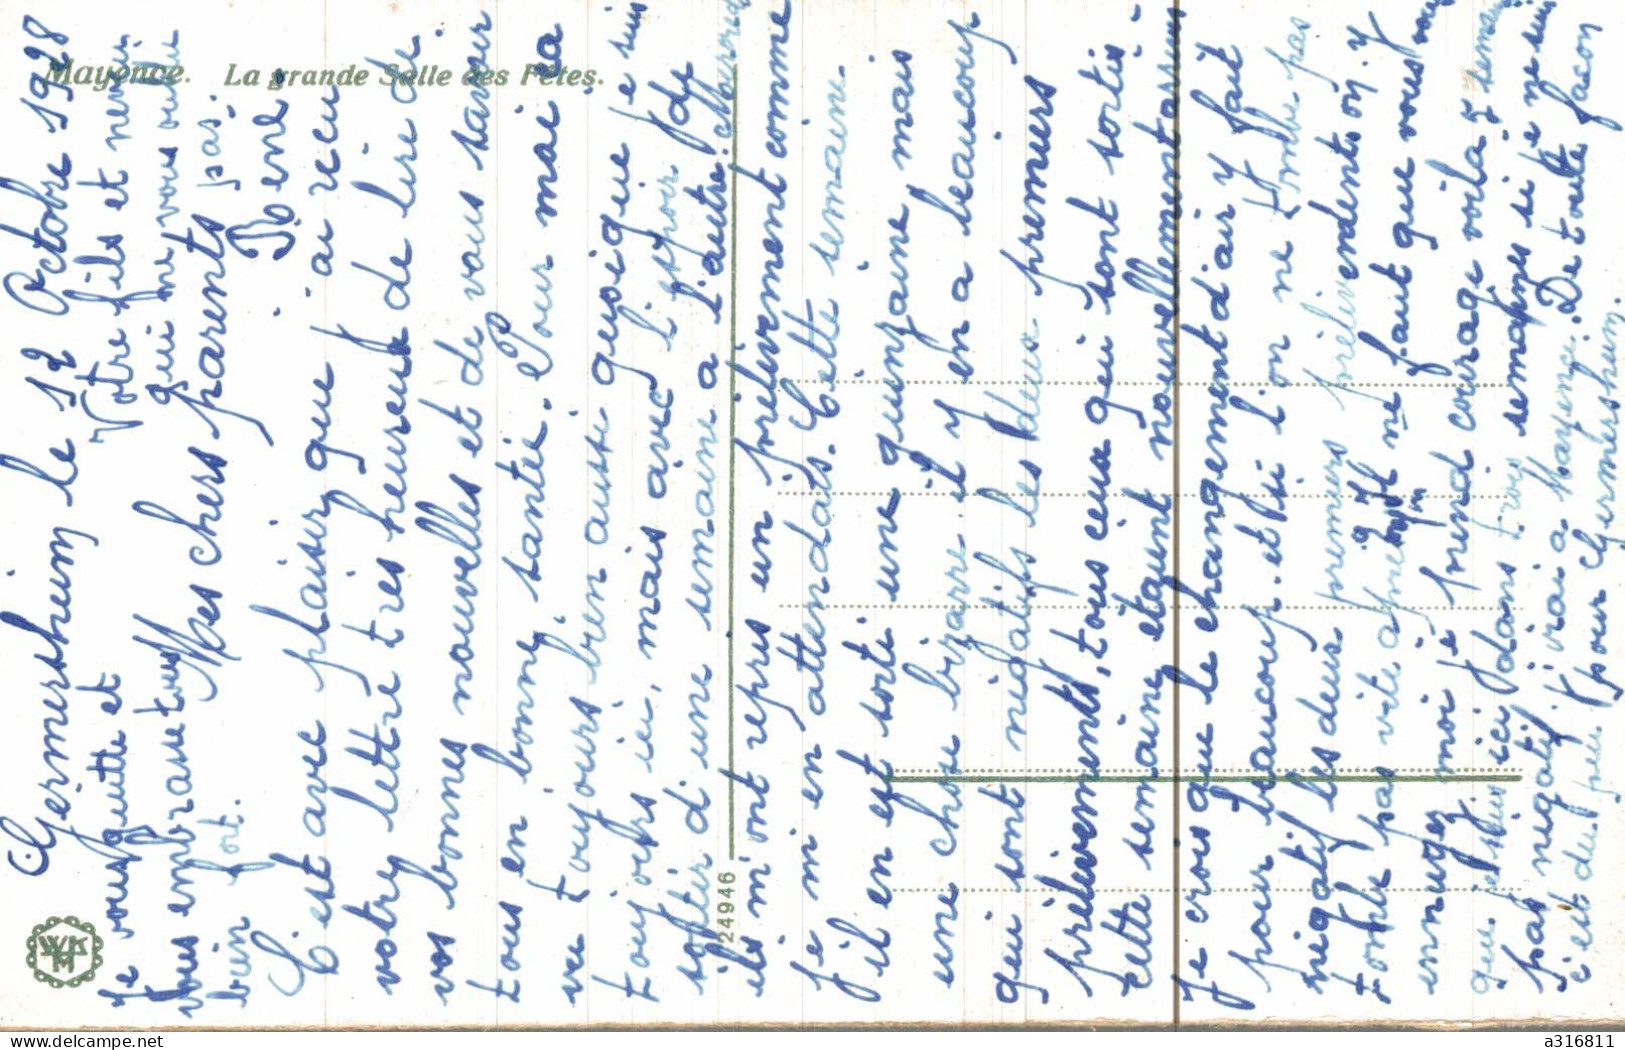 Mayence. La grande Salle des Fêtes.
Germersheim le 12 Octobre 1928
Mes chers parents
C'est avec plaisir que j'ai recu
votre lettre très heureux de lire de
vos bonnes nouvelles et de vous savoir
tous en bonne santée. Pour moi ca
va toujours bien aussi quoique je suis
toujours ici, mais avec l'espoir de
sortir d'une semaine à l'autre.
ils m'ont repris un prélèvement comme
je m'en attendais. Cette semaine
j'il en est sorti une quinzaine mais
une chose bizarre il y en a beaucoup
qui sont négatifs les deux premiers
prélèvements, tous ceux qui sont sortis
cette semaine étaient nouvellement
Je crois que le changement d'air y fait
pour beaucoup. et si l'on ne tombe pas
négatif les deux premiers prélèvements on y
tombe pas vite après Il ne faut que vous vous
ennuyez moi je prend courage voilà 7 semaines
que je suis ici dans trois semaines si je ne suis
pas négatif j'irai a Mayence. De toute facon
c'est du peu pour Germersheim.
Je vous quitte et
vous embrasse tous
bien fort.
Votre fils et neveu
qui ne vous oublie
pas.
René
24946
W W K M
delcampe.net
a316811